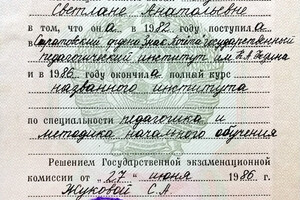 Светлане Анатольевне
в том, что она в 1982 году поступила
в Саратовский ордена Знак Почёта государственный
педагогический институт им. К.А. Федина
и в 1986 году окончила полный курс
названного института
по специальности педагогика и
методика начального обучения
Решением Государственной экзаменационной
комиссии от „27" июня 1986 г.
Жуковой С.А.